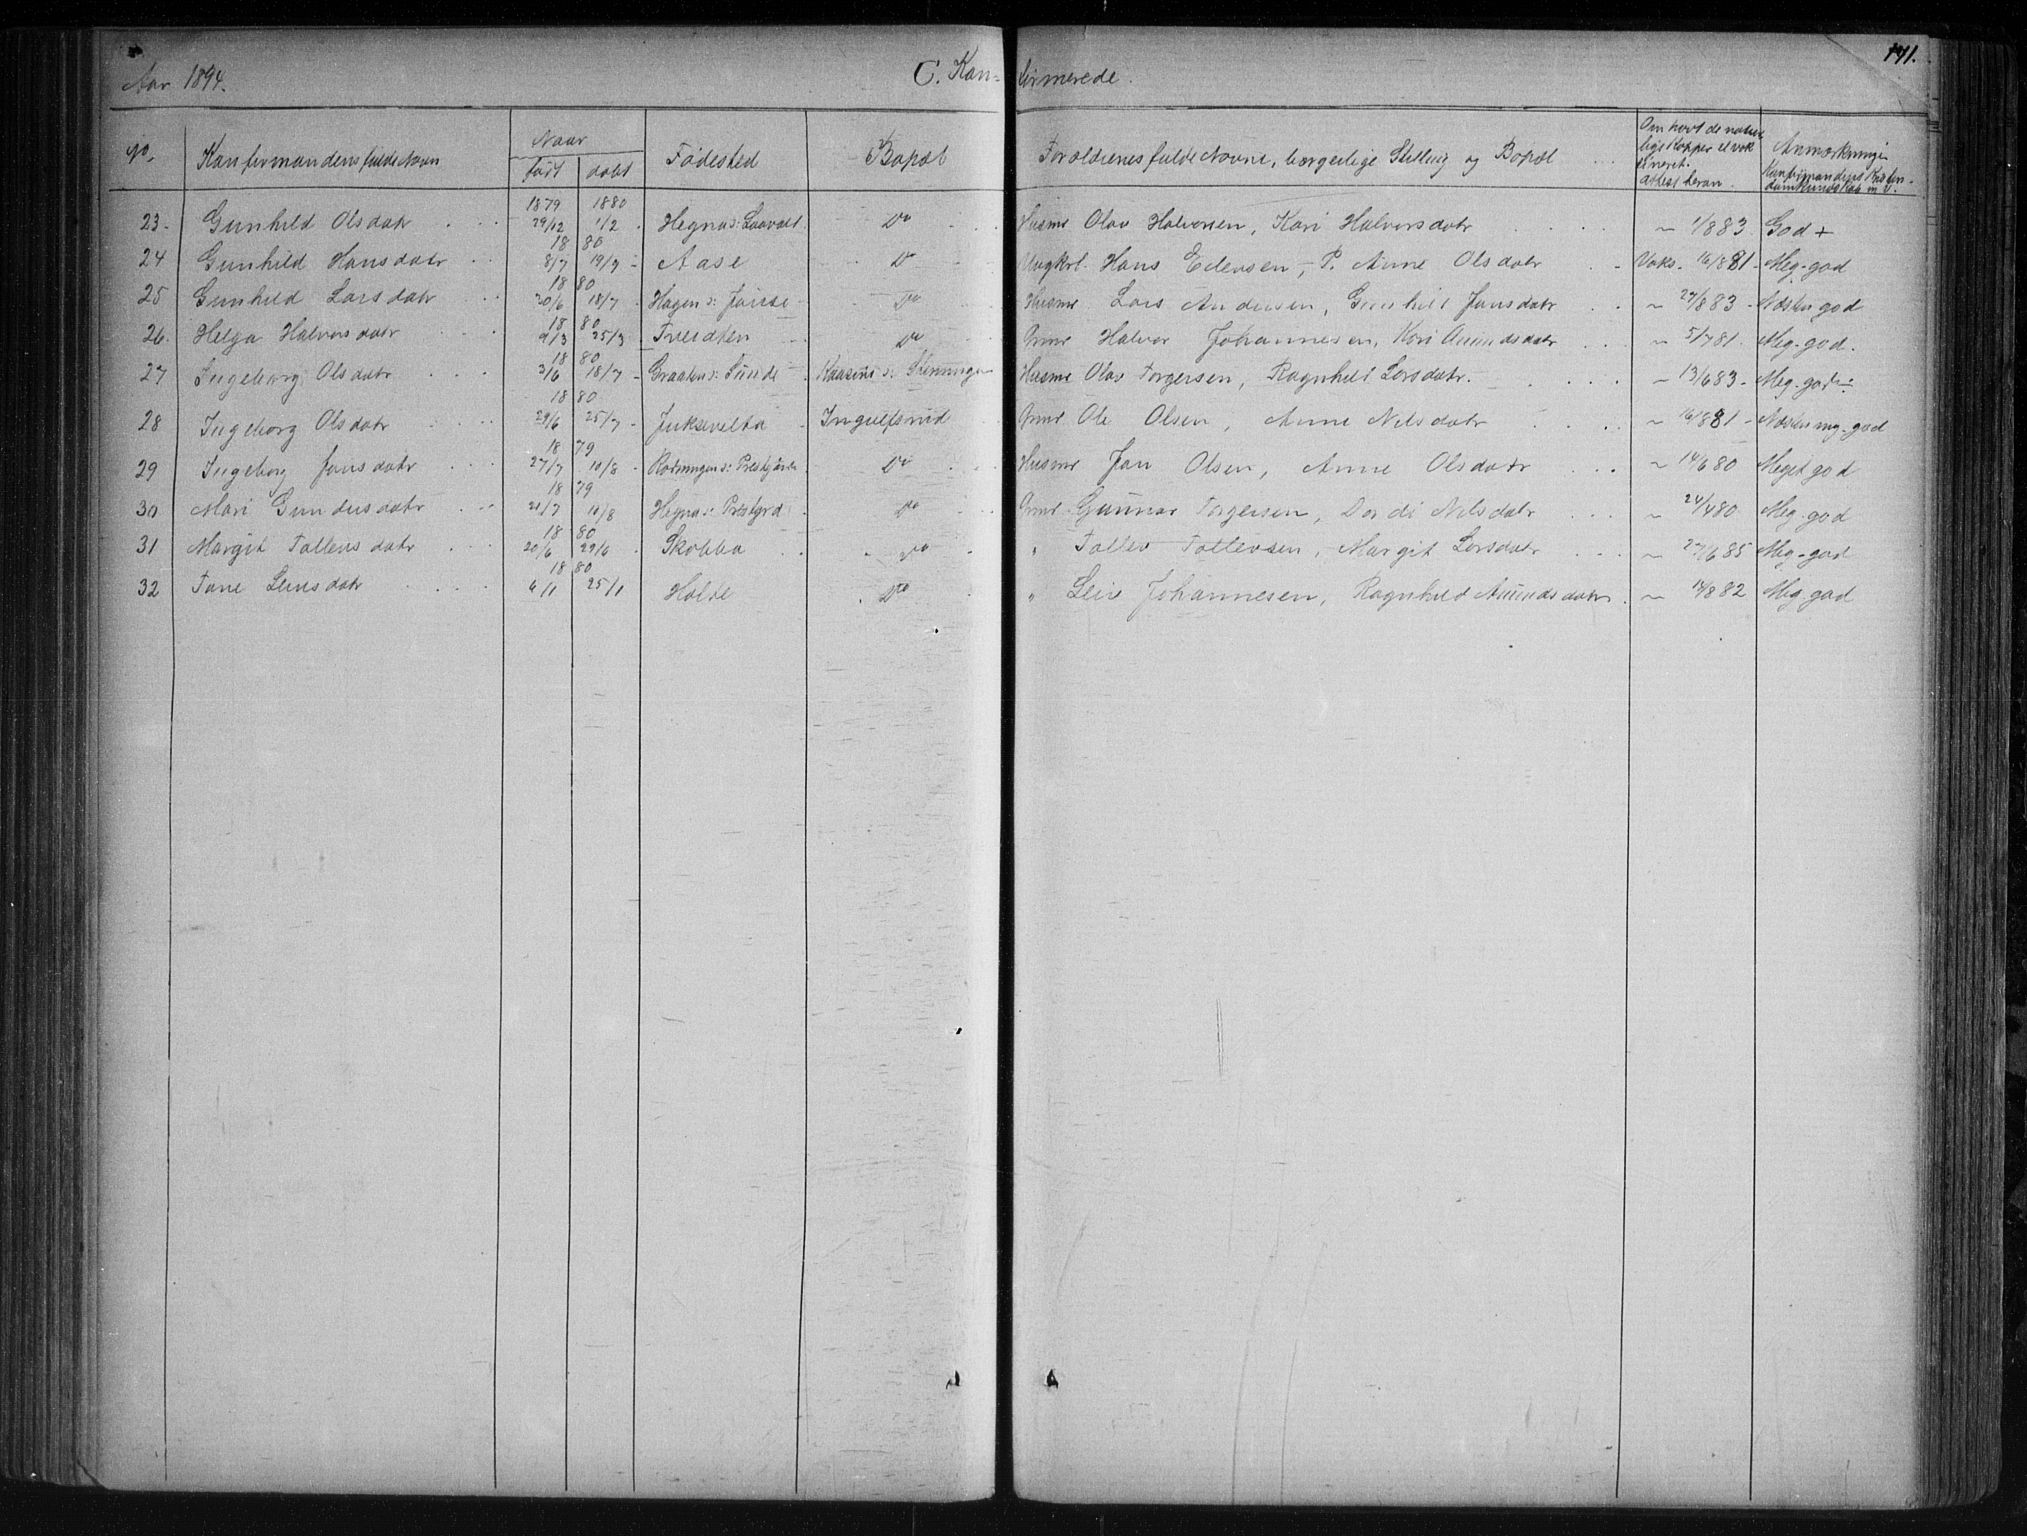 Aar 1894. C. Kon- firmerede. 141.
No. Konfirmandens fulde Navn Naar Fødested Bopæl Forældrenes fulde Navne, borgerlige Stilling og Bopæl Om havt de natur Anmærkninger
født døbt lige Kopper el vak Konfirmandens Kristen-
sineret. domskundskab m. v.
attest heran.
1879 1880
23. Gunhild Olsdatr 29/12 1/2 Hegna s: Do Husmd Olav Halvorsen, Kari Halvorsdatr ~ 1/883. God +
18 80
24 Gunhild Hansdatr 8/7 19/9 Aase Do Ungkrl. Hans Edensen, P. Anne Olsdatr Vaks. 16/881 Meg. god
18 80
25 Gunhild Larsdatr 20/6 18/7 Hagen s: Do Husmd Lars Andersen, Gunhild Jonsdatr ~ 27/883 Næsten god
18 80
26. Helga Halvorsdatr 9/3 25/3 Tveidten Do Grmd Halvor Johannesen, Kari Amundsdatr ~ 5/781. Meg. god.
18 80
27 Ingeborg Olsdatr 3/6 18/7 Graaten s: Sunde Kaasene s: Husmd Olav Torgersen, Ragnhild Larsdatr. ~ 13/683 Meg. god
18 80
28 Ingeborg Olsdatr 29/6 25/7 Juksevelta Ingulfsrud Grmd Ole Olsen, Anne Nilsdatr ~ 16/881 Næsten mg. god
18 79
29 Ingeborg Jonsdatr 27/7 10/8 Do Husmd Jon Olsen, Anne Olsdatr ~ 14/680 Meget god
18 79
30 Mari Gunnersdatr 21/7 10/8 Hegna s: Prestgrd Do Grmd Gunnar Torgersen, Dordi Nilsdatr ~ 24/480 Meg. god
18 80
31 Margit Tollevsdatr 20/6 29/6 Skobba Do " Tollev Tollevsen, Margit Larsdatr ~ 27/685 Meg. god
18 80
32 Tone Leivsdatr 6/1 25/1 Holte Do " Leiv Johannesen, Ragnhild Amundsdatr ~ 14/882 Meg god